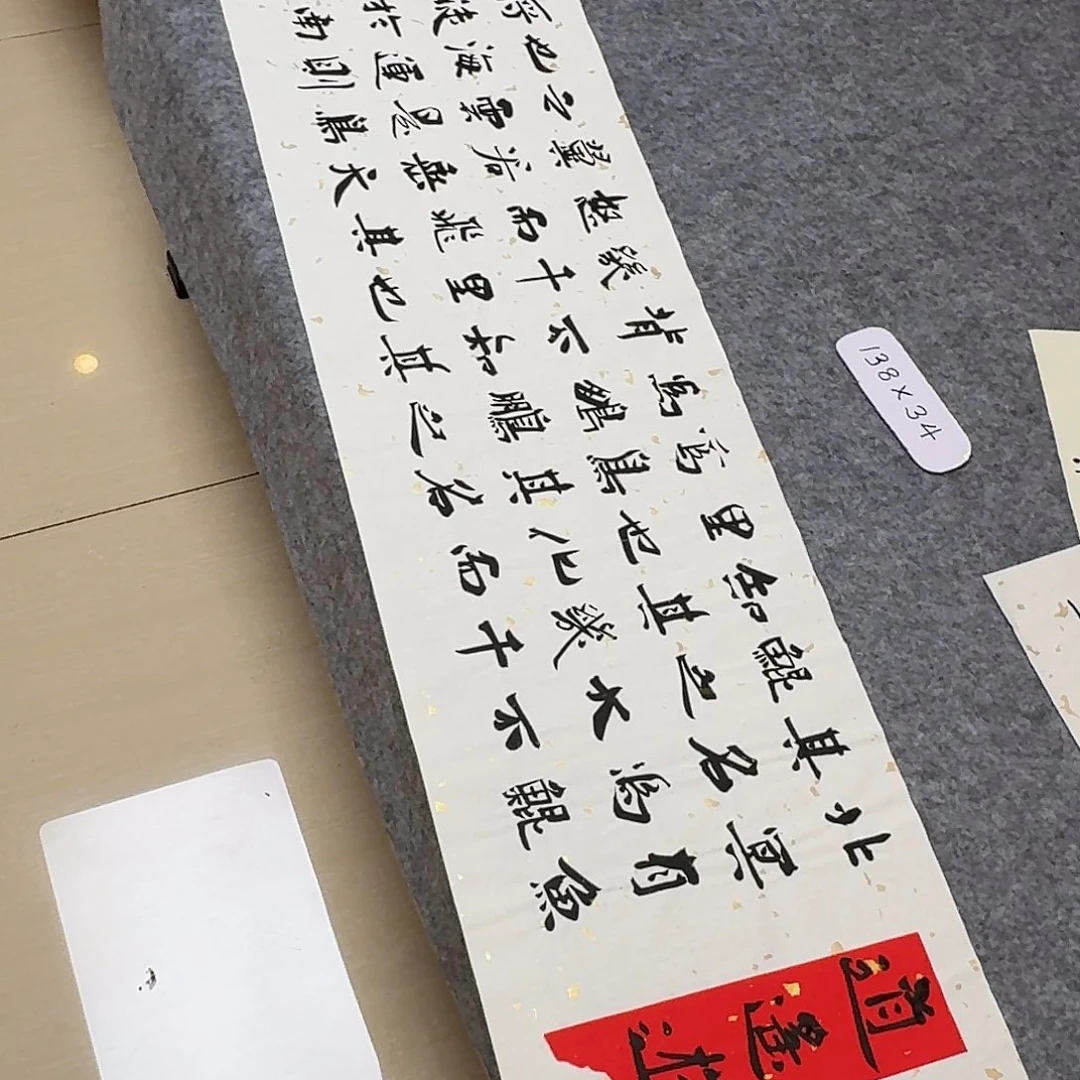 逍遙遊
北冥有魚
其名為鯤
鯤之大不
知其幾千
里也化而
為鳥其名
為鵬鵬之
背不知其
幾千里也
怒而飛其
翼若垂天
之雲是鳥
也海運則
將徙於南
138×34